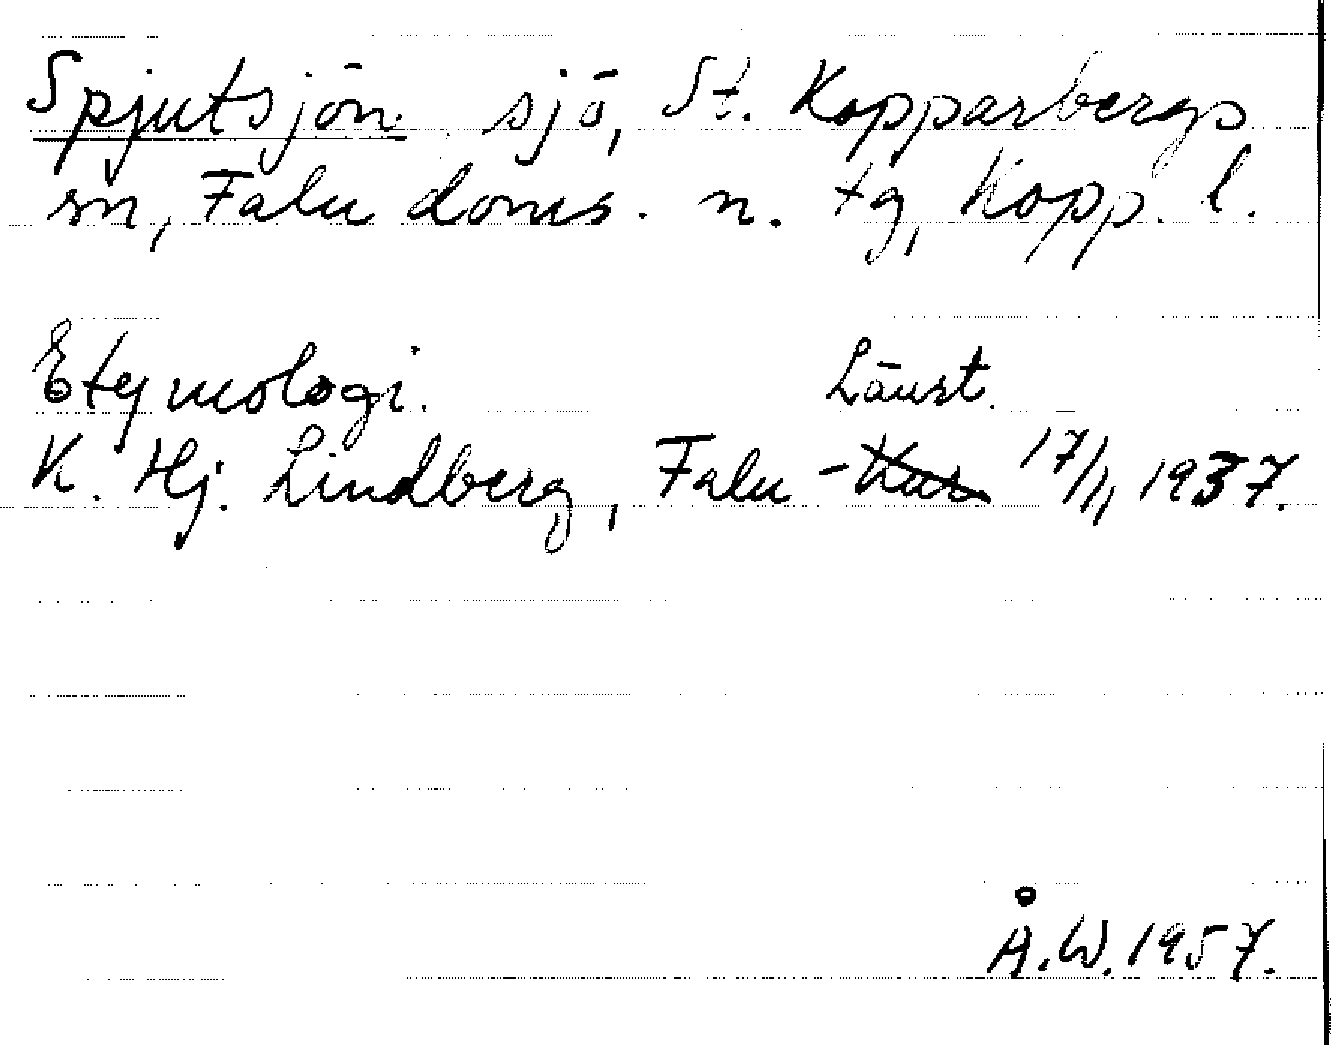 Spjutsjön sjö, St. Kopparbergs
sn, Falu doms. n. tg, Kopp. l.
Etymologi.
Länst.
K. Hj. Lindberg, Falu - Kur 17/11 1937.
Å.W. 1957.